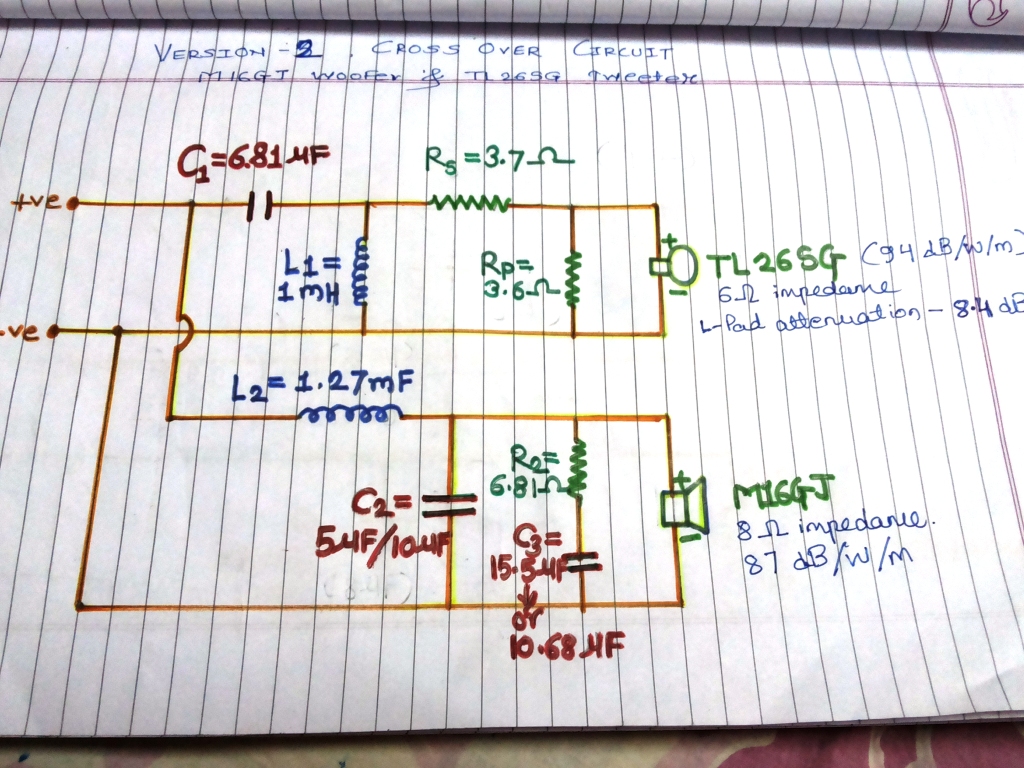 VERSION-2. CROSS OVER CIRCUIT
M16GJ Woofer & TL26SG tweeter
C1=6.81µF
Rs=3.7Ω
+ve
L1=
1mH
Rp=
3.6Ω
+
-
TL26SG (94 dB/W/m)
6Ω impedance
L-Pad attenuation - 8.4 dB
-ve
L2=1.27mF
R2=
6.81Ω
C2=
5µF/10µF
C3=
15.5µF
or
10.68µF
+
-
M16GJ
8Ω impedance.
87 dB/W/m